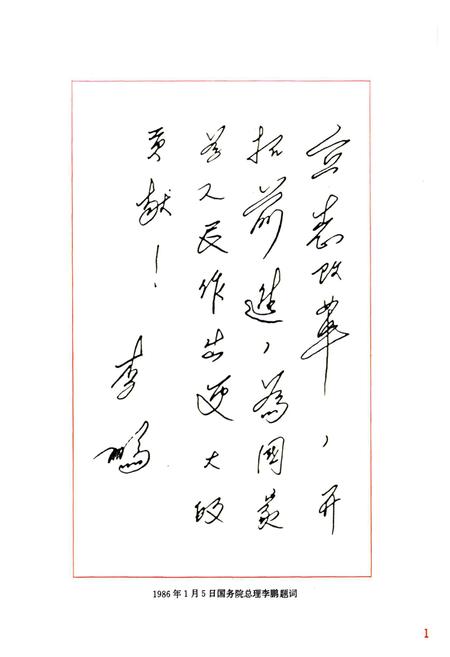 立志改革，开
拓前進，為國家
人民作出更大的
贡献！
李鹏
1986年1月5日国务院总理李鹏题词
1